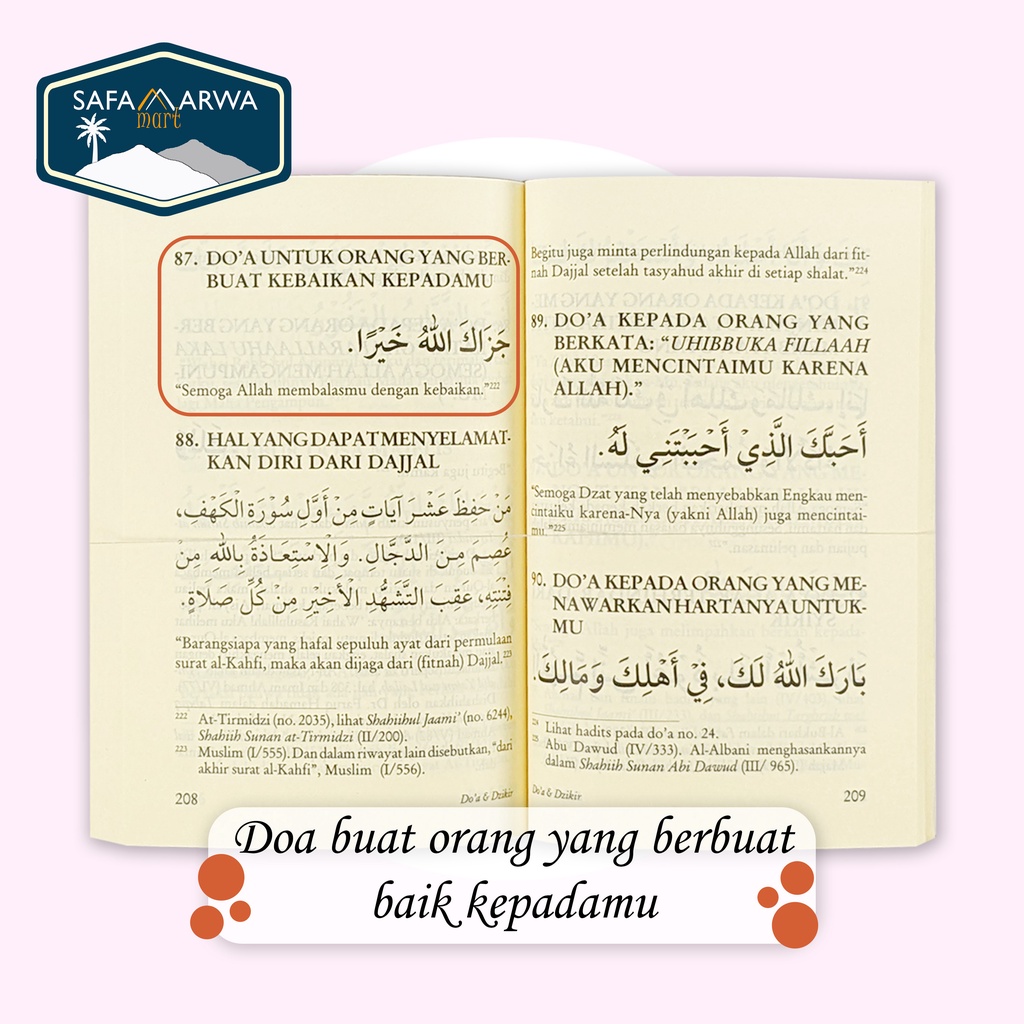 SAFA MARWA
mart
87. DO'A UNTUK ORANG YANG BER-
BUAT KEBAIKAN KEPADAMU
جَزَاكَ اللّٰهُ خَيْرًا.
"Semoga Allah membalasmu dengan kebaikan."222
88. HAL YANG DAPAT MENYELAMAT-
KAN DIRI DARI DAJJAL
مَنْ حَفِظَ عَشْرَ آيَاتٍ مِنْ أَوَّلِ سُوْرَةِ الْكَهْفِ،
عُصِمَ مِنَ الدَّجَّالِ. وَالْاِسْتِعَاذَةُ بِاللّٰهِ مِنْ
فِتْنَتِهِ، عَقِبَ التَّشَهُّدِ الْأَخِيْرِ مِنْ كُلِّ صَلَاةٍ.
"Barangsiapa yang hafal sepuluh ayat dari permulaan
surat al-Kahfi, maka akan dijaga dari (fitnah) Dajjal."223
222 At-Tirmidzi (no. 2035), lihat Shahiihul Jaami' (no. 6244),
Shahiih Sunan at-Tirmidzi (II/200).
223 Muslim (I/555). Dan dalam riwayat lain disebutkan, "dari
akhir surat al-Kahfi", Muslim (I/556).
208 Do'a & Dzikir
Begitu juga minta perlindungan kepada Allah dari fit-
nah Dajjal setelah tasyahud akhir di setiap shalat."224
89. DO'A KEPADA ORANG YANG
BERKATA: "UHIBBUKA FILLAAH
(AKU MENCINTAIMU KARENA
ALLAH)."
أَحَبَّكَ الَّذِيْ أَحْبَبْتَنِي لَهُ.
"Semoga Dzat yang telah menyebabkan Engkau men-
cintaiku karena-Nya (yakni Allah) juga mencintai-
mu."225
90. DO'A KEPADA ORANG YANG ME-
NAWARKAN HARTANYA UNTUK-
MU
بَارَكَ اللّٰهُ لَكَ، فِيْ أَهْلِكَ وَمَالِكَ.
224 Lihat hadits pada do'a no. 24.
225 Abu Dawud (IV/333). Al-Albani menghasankannya
dalam Shahiih Sunan Abi Dawud (III/ 965).
Do'a & Dzikir 209
Doa buat orang yang berbuat
baik kepadamu